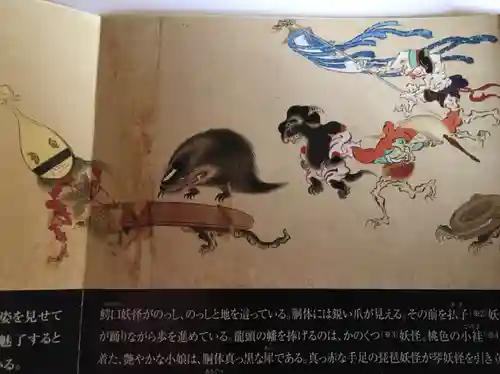 姿を見せて
魅了すると
いる。
鰐口妖怪がのっし、のっしと地を這っている。胴体には鋭い爪が見える。その前を払子(※2)妖
が踊りながら歩を進めている。龍頭の幡を捧げるのは、かのくつ(※3)妖怪。桃色の小袿(※4)
着た、艶やかな小娘は、胴体真っ黒な犀である。真っ赤な手足の琵琶妖怪が琴妖怪を引き立